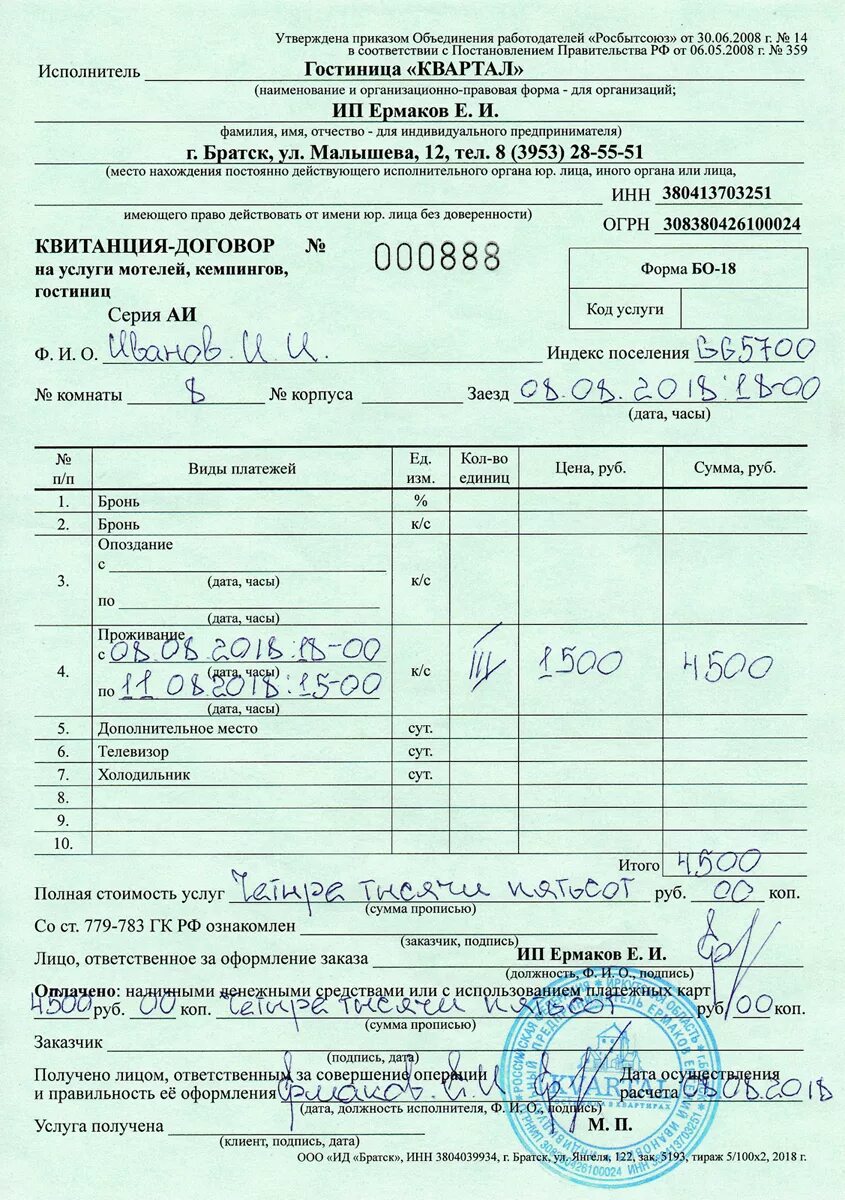 Утверждена приказом Объединения работодателей «Росбытсоюз» от 30.06.2008 г. № 14
в соответствии с Постановлением Правительства РФ от 06.05.2008 г. № 359
Исполнитель Гостиница «КВАРТАЛ»
(наименование и организационно-правовая форма - для организаций;
ИП Ермаков Е. И.
фамилия, имя, отчество - для индивидуального предпринимателя)
г. Братск, ул. Малышева, 12, тел. 8 (3953) 28-55-51
(место нахождения постоянно действующего исполнительного органа юр. лица, иного органа или лица,
ИНН 380413703251
имеющего право действовать от имени юр. лица без доверенности)
ОГРН 308380426100024
КВИТАНЦИЯ-ДОГОВОР № 000888
на услуги мотелей, кемпингов,
гостиниц
Форма БО-18
Код услуги
Серия АИ
Ф. И. О. Иванов. И. И. Индекс поселения 665700
№ комнаты 8 № корпуса Заезд 08.08.2018:18-00
(дата, часы)
№ п/п Виды платежей Ед. изм. Кол-во единиц Цена, руб. Сумма, руб.
1. Бронь %
2. Бронь к/с
3. Опоздание к/с
с
(дата, часы)
по
(дата, часы)
4. Проживание к/с III 1500 4500
с 08.08.2018:18-00
(дата, часы)
по 11 08.2018:15-00
(дата, часы)
5. Дополнительное место сут.
6. Телевизор сут.
7. Холодильник сут.
8.
9.
10.
Итого 4500
Полная стоимость услуг Четыре тысячи пятьсот руб. 00 коп.
(сумма прописью)
Со ст. 779-783 ГК РФ ознакомлен
(заказчик, подпись)
Лицо, ответственное за оформление заказа ИП Ермаков Е. И.
(должность, Ф. И. О., подпись)
Оплачено: наличными денежными средствами или с использованием платежных карт
4500 руб. 00 коп. Четыре тысячи пятьсот руб. 00 коп.
(сумма прописью)
Заказчик
(подпись, дата)
Получено лицом, ответственным за совершение операции
и правильность её оформления Ермаков. Е. И
Дата осуществления
расчета 08.08.2018
(дата, должность исполнителя, Ф. И. О., подпись)
Услуга получена
М. П.
(клиент, подпись, дата)
KVARTAL
ООО «ИД «Братск», ИНН 3804039934, г. Братск, ул. Янгеля, 122, зак. 5193, тираж 5/100х2, 2018 г.